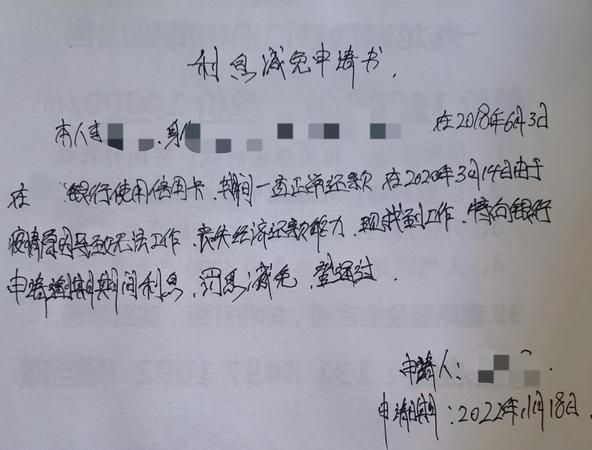 利息减免申请书.
本人 身 在2018年6月3日
在 银行使用信用卡.期间一直正常还款 在2020年3月14日由于
疫情原因导致无法工作.丧失经济还款能力.现找到工作.特向银行
申请逾期期间利息.罚息减免.望通过.
申请人:
申请日期:2022年11月18日.